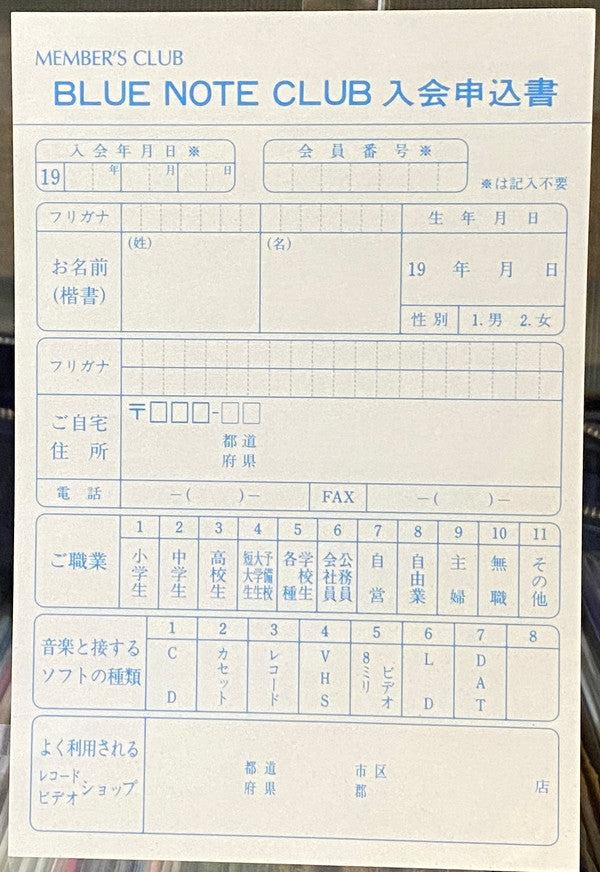 MEMBER'S CLUB
BLUE NOTE CLUB 入会申込書
入会年月日※
会員番号※
19 年 月 日
※は記入不要
フリガナ
生年月日
お名前
(楷書)
(姓)
(名)
19 年 月 日
性別 1.男 2.女
フリガナ
ご自宅
住所
〒□□□-□□
都道
府県
電話 －( )－ FAX －( )－
ご職業
1 2 3 4 5 6 7 8 9 10 11
小学生
中学生
高校生
短大生
大学生
予備校生
各種
学校生
会社員
公務員
自営
自由業
主婦
無職
その他
音楽と接する
ソフトの種類
1 2 3 4 5 6 7 8
CD
カセット
レコード
VHS
8ミリ
ビデオ
LD
DAT
よく利用される
レコード
ビデオ
ショップ
都道
府県
市区
郡
店